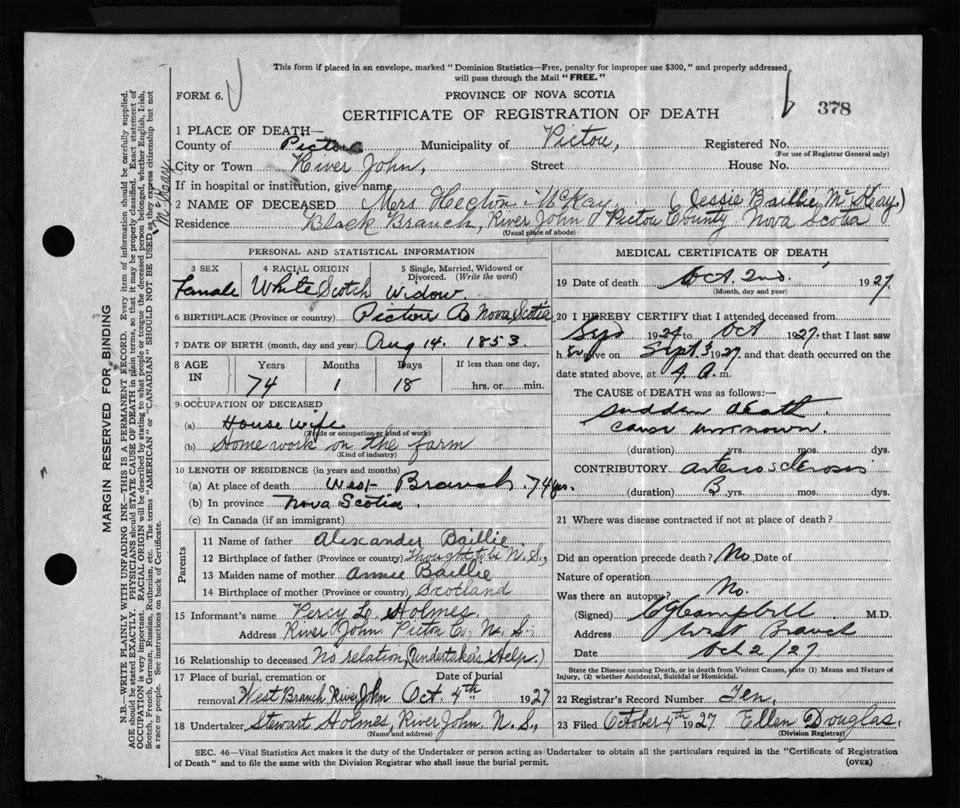 This form if placed in an envelope, marked "Dominion Statistics—Free, penalty for improper use $300," and properly addressed
will pass through the Mail "FREE."
FORM 6.
PROVINCE OF NOVA SCOTIA
CERTIFICATE OF REGISTRATION OF DEATH
378
1 PLACE OF DEATH—
County of Pictou Municipality of Pictou, Registered No.
(For use of Registrar General only)
City or Town River John, Street House No.
If in hospital or institution, give name
2 NAME OF DECEASED Mrs McKay (Jessie Baillie McKay)
Residence Black Branch, River John Pictou County Nova Scotia
(Usual place of abode)
PERSONAL AND STATISTICAL INFORMATION
3 SEX 4 RACIAL ORIGIN 5 Single, Married, Widowed or Divorced. (Write the word)
Female White Scotch Widow
6 BIRTHPLACE (Province or country) Pictou Co Nova Scotia
7 DATE OF BIRTH (month, day and year) Aug 14. 1853
8 AGE IN Years Months Days If less than one day,
74 1 18 hrs. or min.
9 OCCUPATION OF DECEASED
(a) House wife
(Trade or occupation or kind of work)
(b) Home work on the farm
(Kind of industry)
10 LENGTH OF RESIDENCE (in years and months)
(a) At place of death West Branch 74 yrs.
(b) In province Nova Scotia.
(c) In Canada (if an immigrant)
Parents
11 Name of father Alexander Baillie
12 Birthplace of father (Province or country) Thought to be N.S.,
13 Maiden name of mother Annie Baillie
14 Birthplace of mother (Province or country) Scotland
15 Informant's name Percy L. Holmes
Address River John Pictou Co., N. S.,
16 Relationship to deceased No relation, (Undertaker's Help.)
17 Place of burial, cremation or removal Date of burial
West Branch River John Oct. 4th 1927
18 Undertaker Stewart Holmes, River John N. S.,
(Name and address)
MEDICAL CERTIFICATE OF DEATH
19 Date of death Oct. 2nd, 1927.
(Month, day and year)
20 I HEREBY CERTIFY that I attended deceased from
1924 to Oct 1927. that I last saw
h er alive on Sept 1927. and that death occurred on the
date stated above, at 4 A. m.
The CAUSE of DEATH was as follows:
sudden death
cause unknown.
(duration) yrs. mos. dys.
CONTRIBUTORY arteriosclerosis
(duration) 3 yrs. mos. dys.
21 Where was disease contracted if not at place of death?
Did an operation precede death? No Date of
Nature of operation
Was there an autopsy? No.
(Signed) Campbell M.D.
Address West Branch
Date Oct 2/27
State the Disease causing Death, or in death from Violent Causes, state (1) Means and Nature of
Injury, (2) whether Accidental, Suicidal or Homicidal.
22 Registrar's Record Number Ten,
23 Filed October 4th 1927 Ellen Douglas.
(Division Registrar)
SEC. 46—Vital Statistics Act makes it the duty of the Undertaker or person acting as Undertaker to obtain all the particulars required in the "Certificate of Registration
of Death" and to file the same with the Division Registrar who shall issue the burial permit.
(OVER)
MARGIN RESERVED FOR BINDING
N.B.—WRITE PLAINLY WITH UNFADING INK—THIS IS A PERMANENT RECORD. Every item of information should be carefully supplied.
AGE should be stated EXACTLY. PHYSICIANS should STATE CAUSE OF DEATH in plain terms, so that it may be properly classified. Exact statement of
OCCUPATION is very important. RACIAL ORIGIN will be described by stating to what people or tongue the deceased person belonged, whether English, Irish,
Scotch, French, German, Russian, Ruthenian, etc. The terms "AMERICAN" or "CANADIAN" SHOULD NOT BE USED as they express citizenship but not
a race or people. See instructions on back of Certificate.
McKay